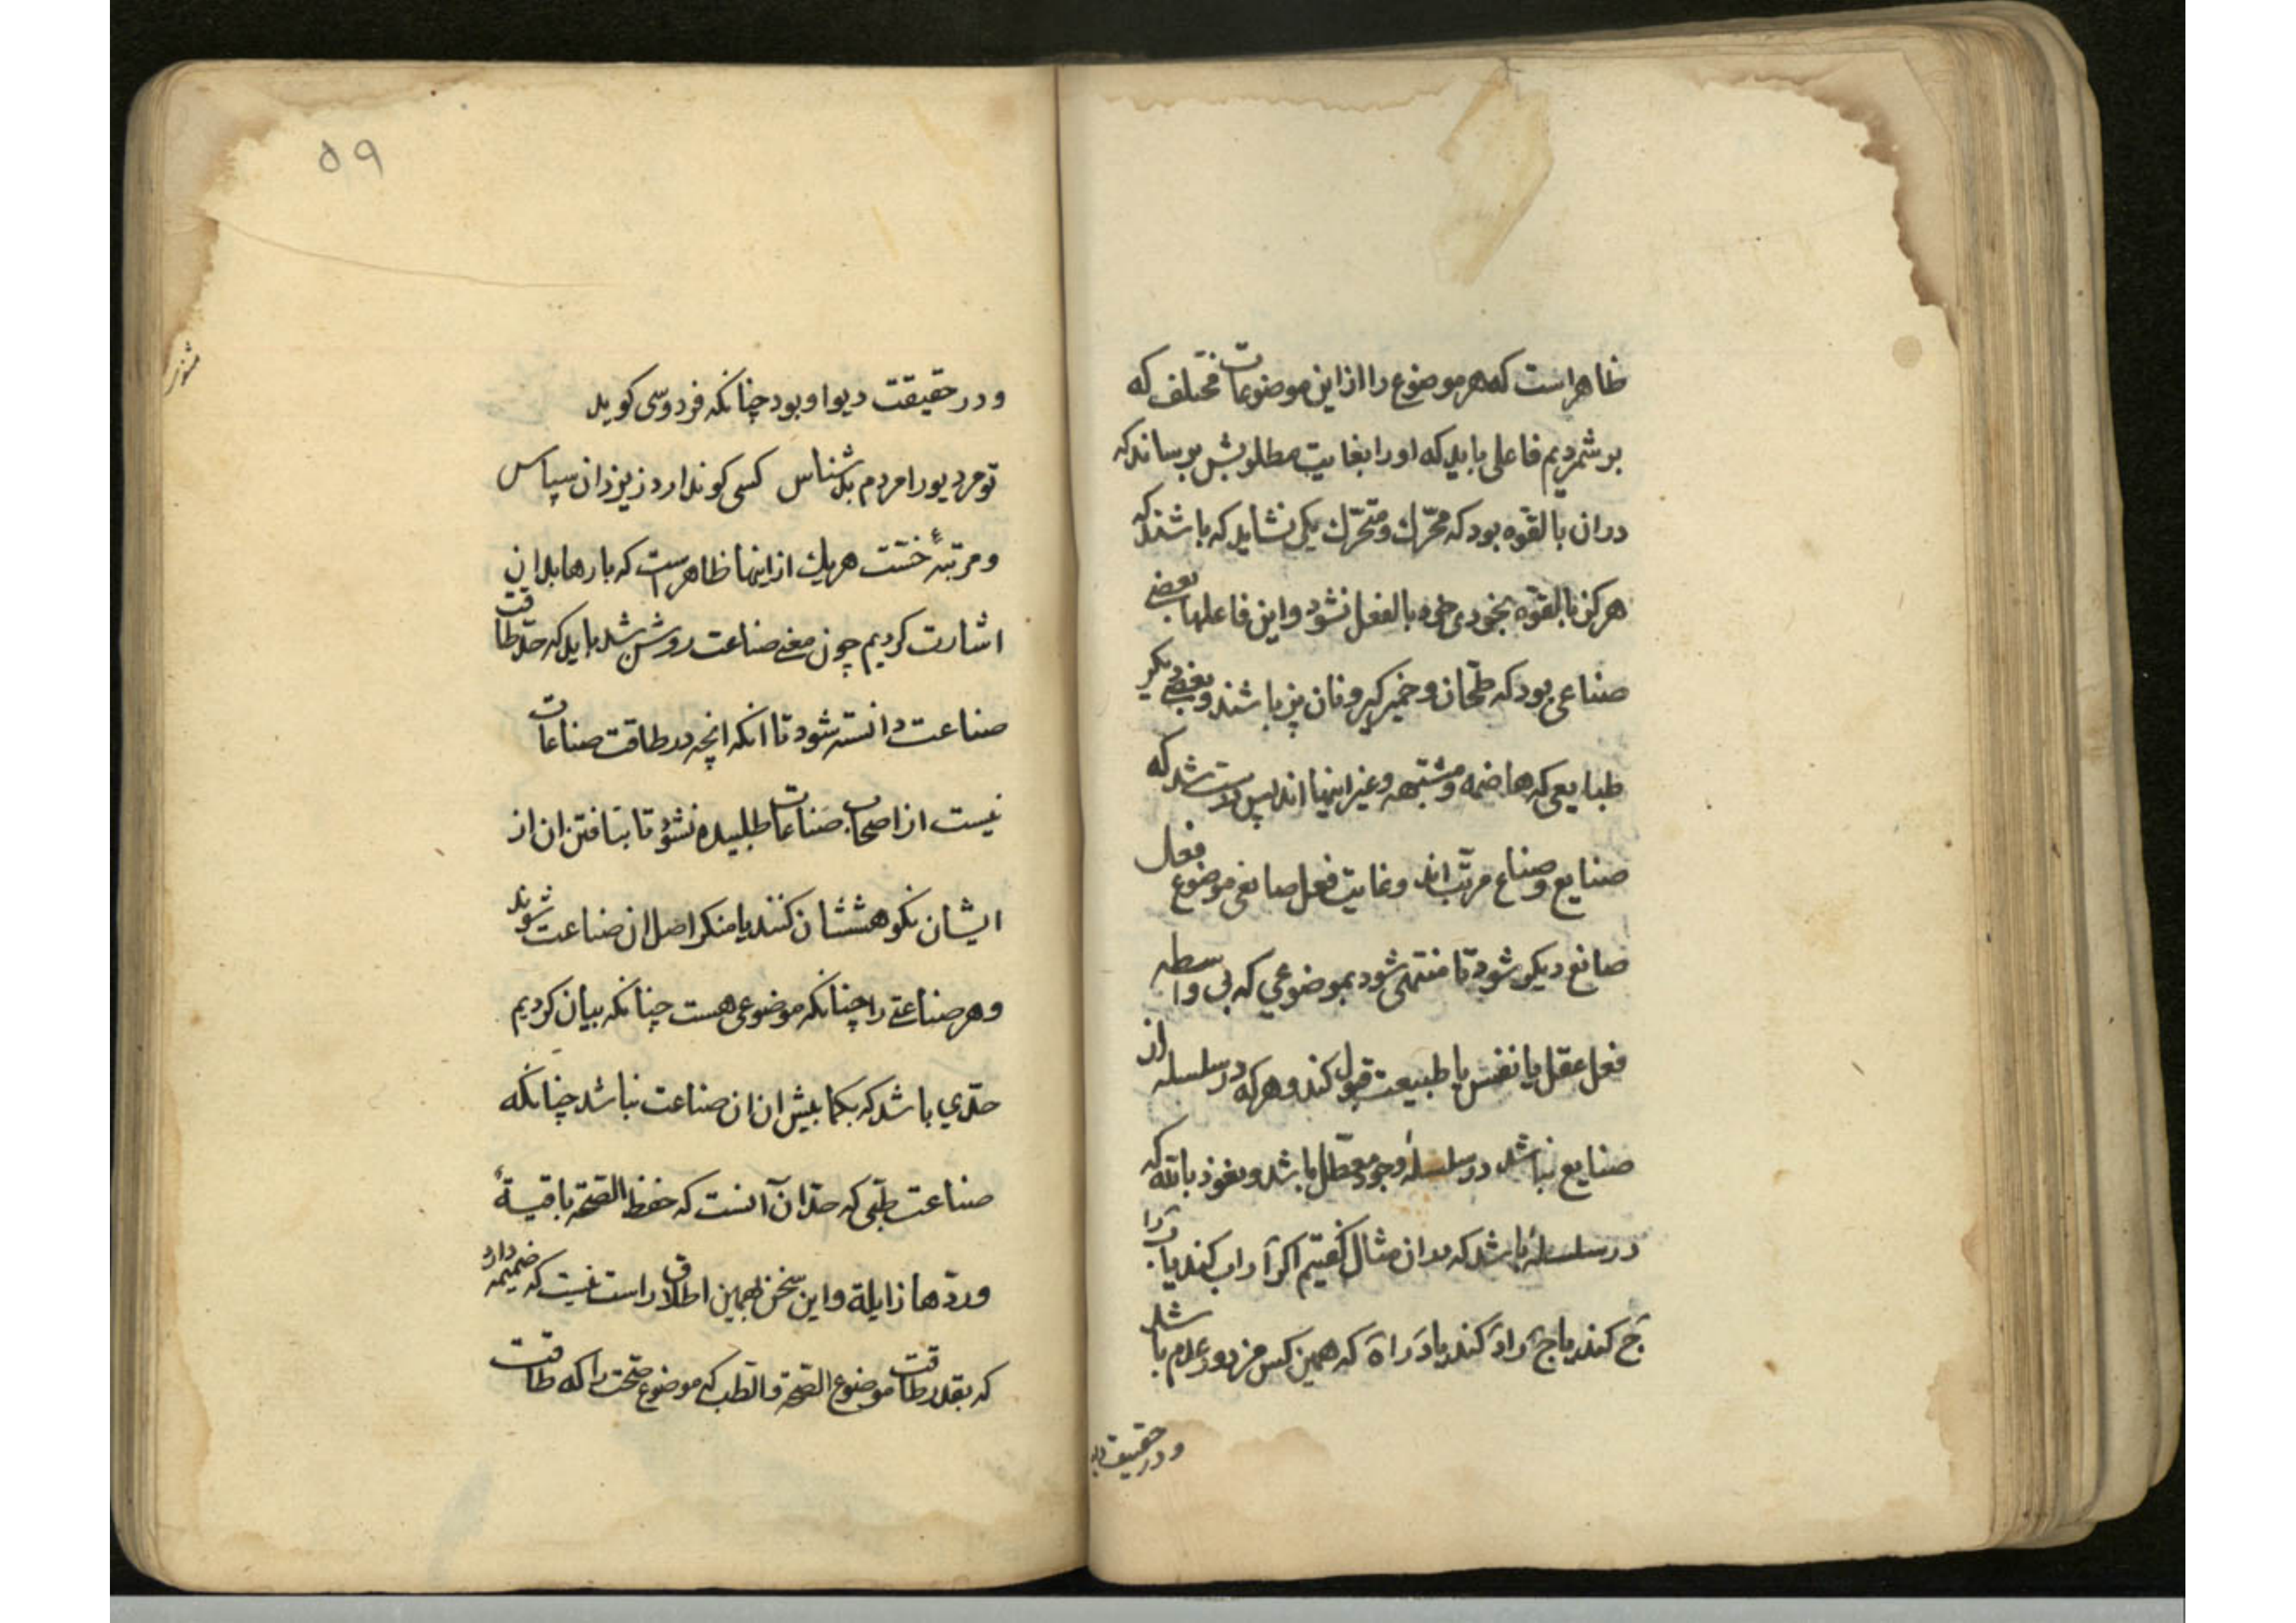 ظاهراست که هر موضوع را از این موضوعات مختلف که
بر شمردیم فاعلی باید که او را بغایت مطلوبش برساند که
دران بالقوه بود که محرّك و متحرّك یکی نشاید که باشند که
هرکز بالقوّه بخودی خود بالفعل نشود و این فاعلها بعضے
صناعی بود که طحّان و خمیرکیر و نان پز باشند و بعضے دیکر
طبایعی که هاضمه و مشبّهه و غیر اینها اند پس درست شد که
صنایع و صناع مرتّب اند و غایت فعل صانعی موضوع فعال
صانع دیکر شود تا منتهی شود بموضوعي که بی واسطه
فعل عقل یا نفس یا طبیعت قبول کند و هرکه در سلسله از
صنایع نباشد در سلسلهٔ وجود معطّل باشد و نعوذ بالله که
در سلسلهٔ باشد که بدان مثال کفتیم اکر آ را ب کند یا ب را
ج کند یا ج را د کند یا د را ه که همین کس مزدور عدم باشد
و در حقیقت دیو
۵۹
و در حقیقت دیو او بود چنانکه فردوسی کوید
تو مر دیو را مردم بد شناس کسی کو ندارد ز یزدان سپاس
و مرتبهٔ خسّت هریك از اینها ظاهر است که بارها بدان
اشارت کردیم چون معنے صناعت روشن شد باید که حد طاقت
صناعت دانسته شود تا انکه انچه در طاقت صناعات
نیست از اصحاب صناعات طلبیده نشود تا بنا یافتن ان از
ایشان نکوهششان کنند یا منکر اصل ان صناعت شوند
و هر صناعتے را چنانکه موضوعی هست چنانکه بیان کردیم
حدّي باشد که بکما بیش ان ان صناعت نباشد چنانکه
صناعت طبّی که حدّ ان آنست که حفظ الصّحة باقیة
وردّها زایلة و این سخن بهمین اطلاق راست نیست که ضمیمه دارد
که بقدر طاقت موضوع الصّحة والطب که موضوع صحّت را که طاقت